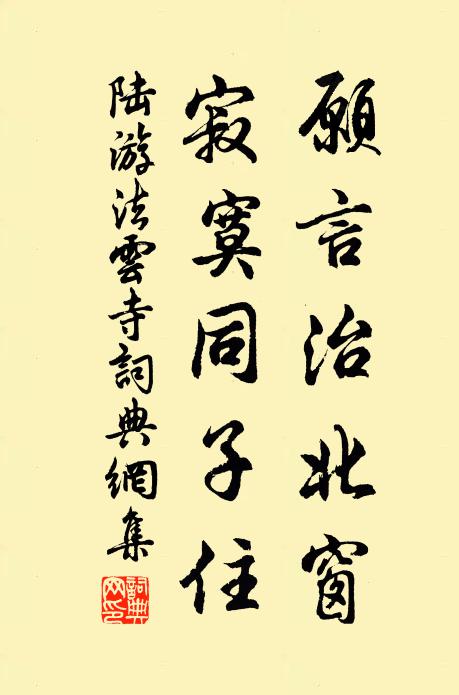 願言治北窗
寂寞同子住
陸游法雲寺詞典網集
詞典網印